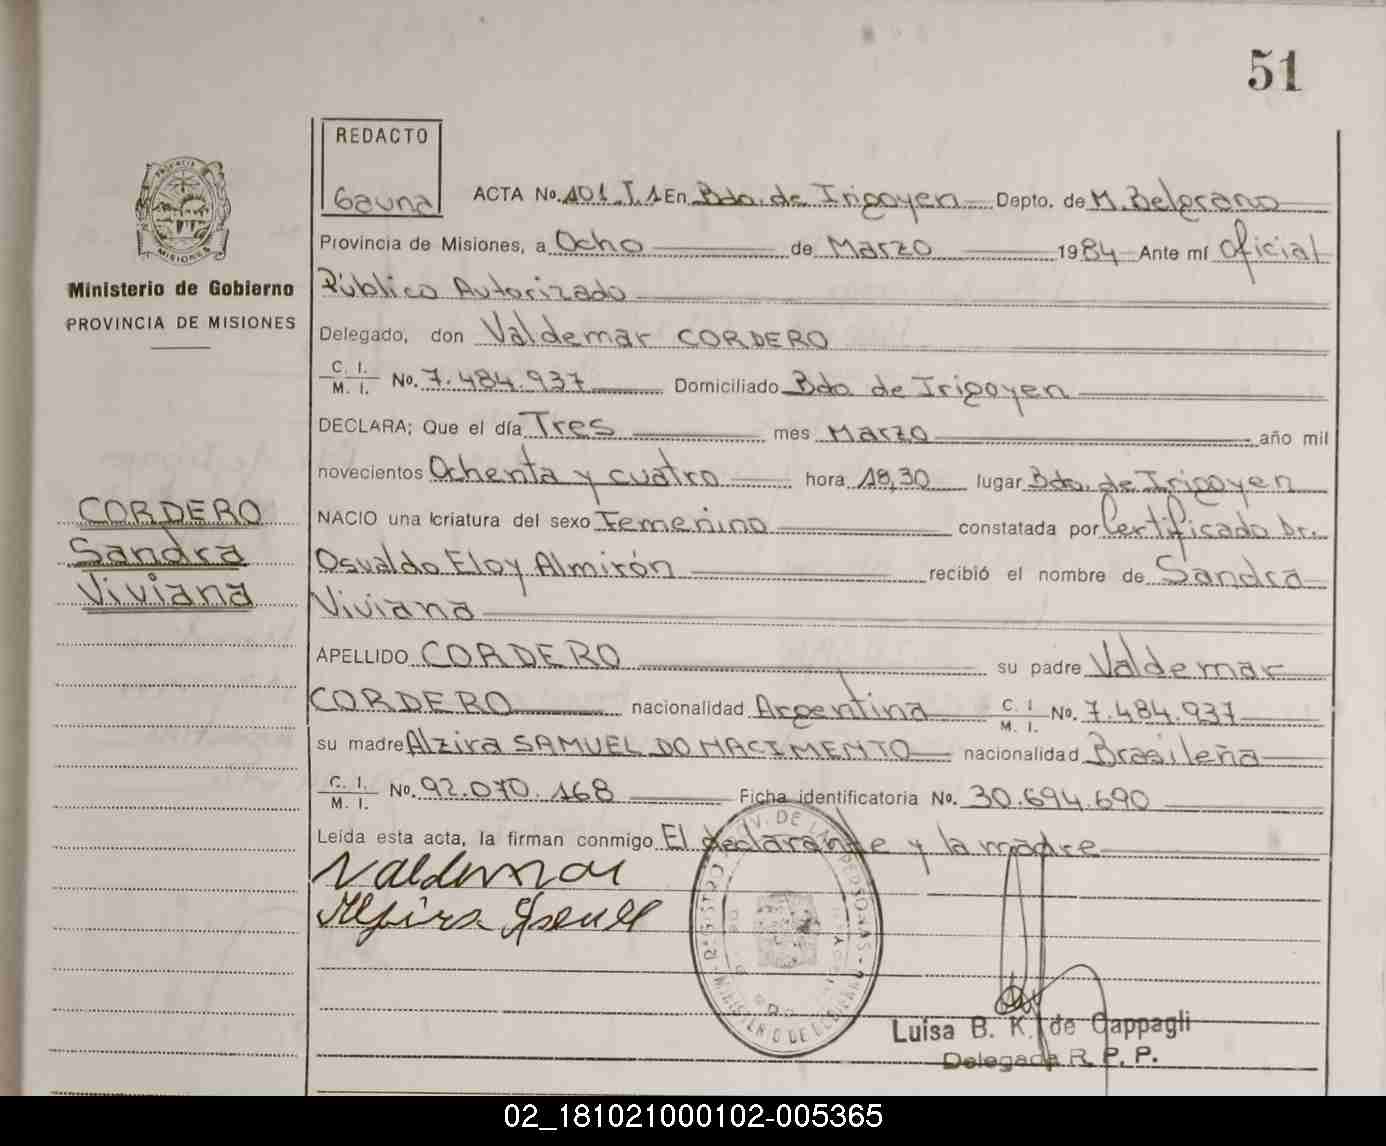 51
REDACTO
Gauna
ACTA No. 101 T.1 En Bdo. de Irigoyen Depto. de M. Belgrano
Provincia de Misiones, a Ocho de Marzo 1984 Ante mí Oficial
Público Autorizado
Delegado, don Valdemar CORDERO
C. I.
M. I. No. 7.484.937 Domiciliado Bdo de Irigoyen
DECLARA; Que el día Tres mes Marzo año mil
novecientos Ochenta y cuatro hora 18,30 lugar Bdo. de Irigoyen
NACIO una criatura del sexo Femenino constatada por Certificado Dr.
Osvaldo Eloy Almirón recibió el nombre de Sandra
Viviana
APELLIDO CORDERO su padre Valdemar
CORDERO nacionalidad Argentina C. I.
M. I. No. 7.484.937
su madre Alzira SAMUEL DO NACIMENTO nacionalidad Brasileña
C. I.
M. I. No. 92.070.168 Ficha identificatoria No. 30.694.690
Leída esta acta, la firman conmigo El declarante y la madre
Valdemar
Luisa B. K. de Cappagli
Delegada R. P. P.
PROVINCIA
MISIONES
Ministerio de Gobierno
PROVINCIA DE MISIONES
CORDERO
Sandra
Viviana
02_181021000102-005365